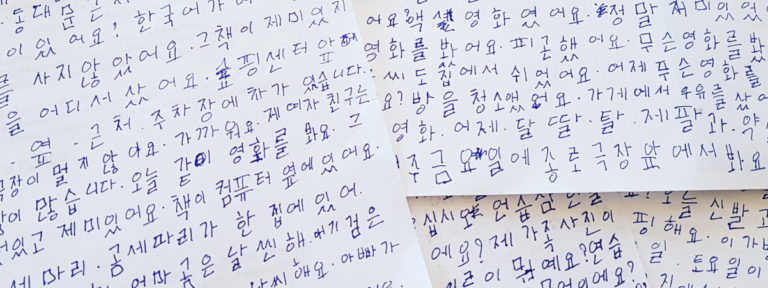 동대문
이 있어요? 한국어가
사지 않았어요. 그책이 제미있지
을 어디서 샀어요. 쇼핑센터 앞
옆. 근처. 주차장에 차가 있습니다.
극장이 멀지 않아요. 가까워요. 제 여자 친구는
이 많습니다. 오늘 같이 영화를 봐요. 그
있고 제미있어요. 책이 컴퓨터 옆에 있어요.
세마리. 곰세마리가 한 집에 있어.
엄마곰은 날씬해. 여기 검은
해요. 아빠가
어요? 액션영화였어요. 정말 저미있었
영화를 봤어요. 피곤했어요. 무슨영화를 봤
씨도 집에서 쉬었어요. 어제 무슨영화를
요? 방을 청소했어요. 가게에서 우유를 샀어
영화. 어제. 달. 딸. 탈. 제팔과. 약
주 금요일에 종로 극장 앞에서 봐요
십시오. 연습
에요? 제 가족사진이
이 뭐예요? 연습
오늘 신발
피해요. 이가방
일. 토요일이